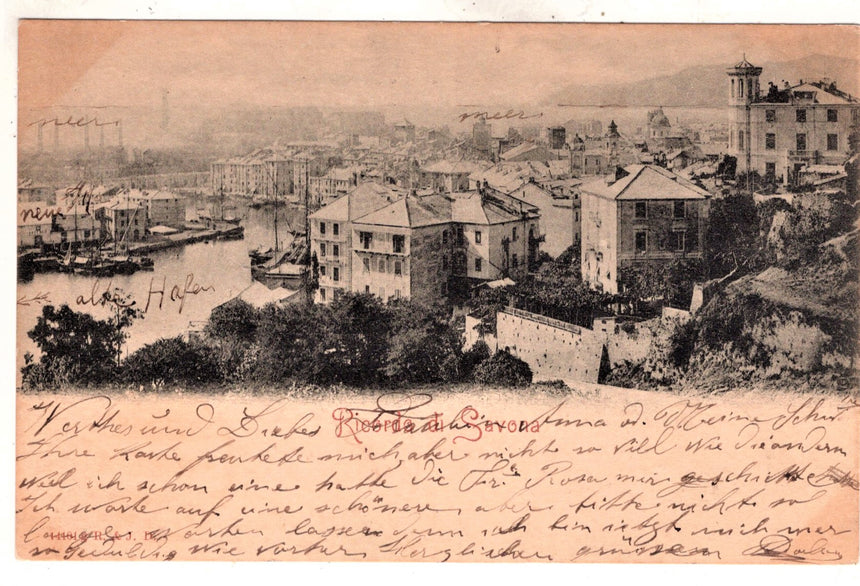 meer
meer
neuer
alter Hafen
Ricordo di Savona
Werthes und Liebes Anna od. Meine
Ihre Karte freute mich aber nicht so vill wie die andern
weil ich schon eine hatte die Frl Rosa mir geschickt
Ich warte auf eine schönere, aber bitte nicht so
warten lassen denn ich bin jetzt nich mer
so geduldig wie vorher Herzlichen grüssen